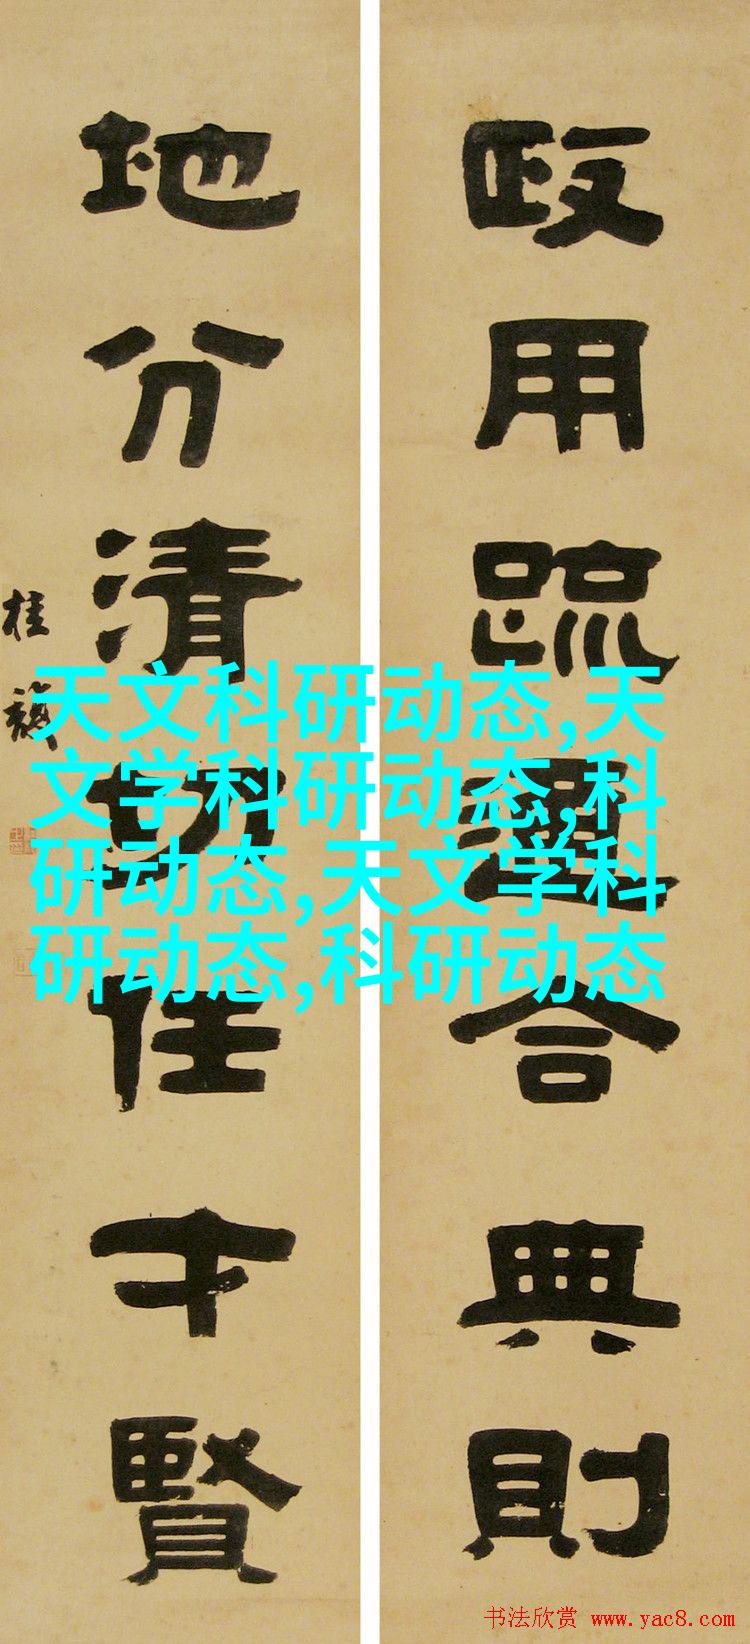 政用疏通合典則
地分清切任才賢
桂馥
天文科研动态,天
文学科研动态,科
研动态,天文学科
研动态,科研动态
书法欣赏 www.yac8.com